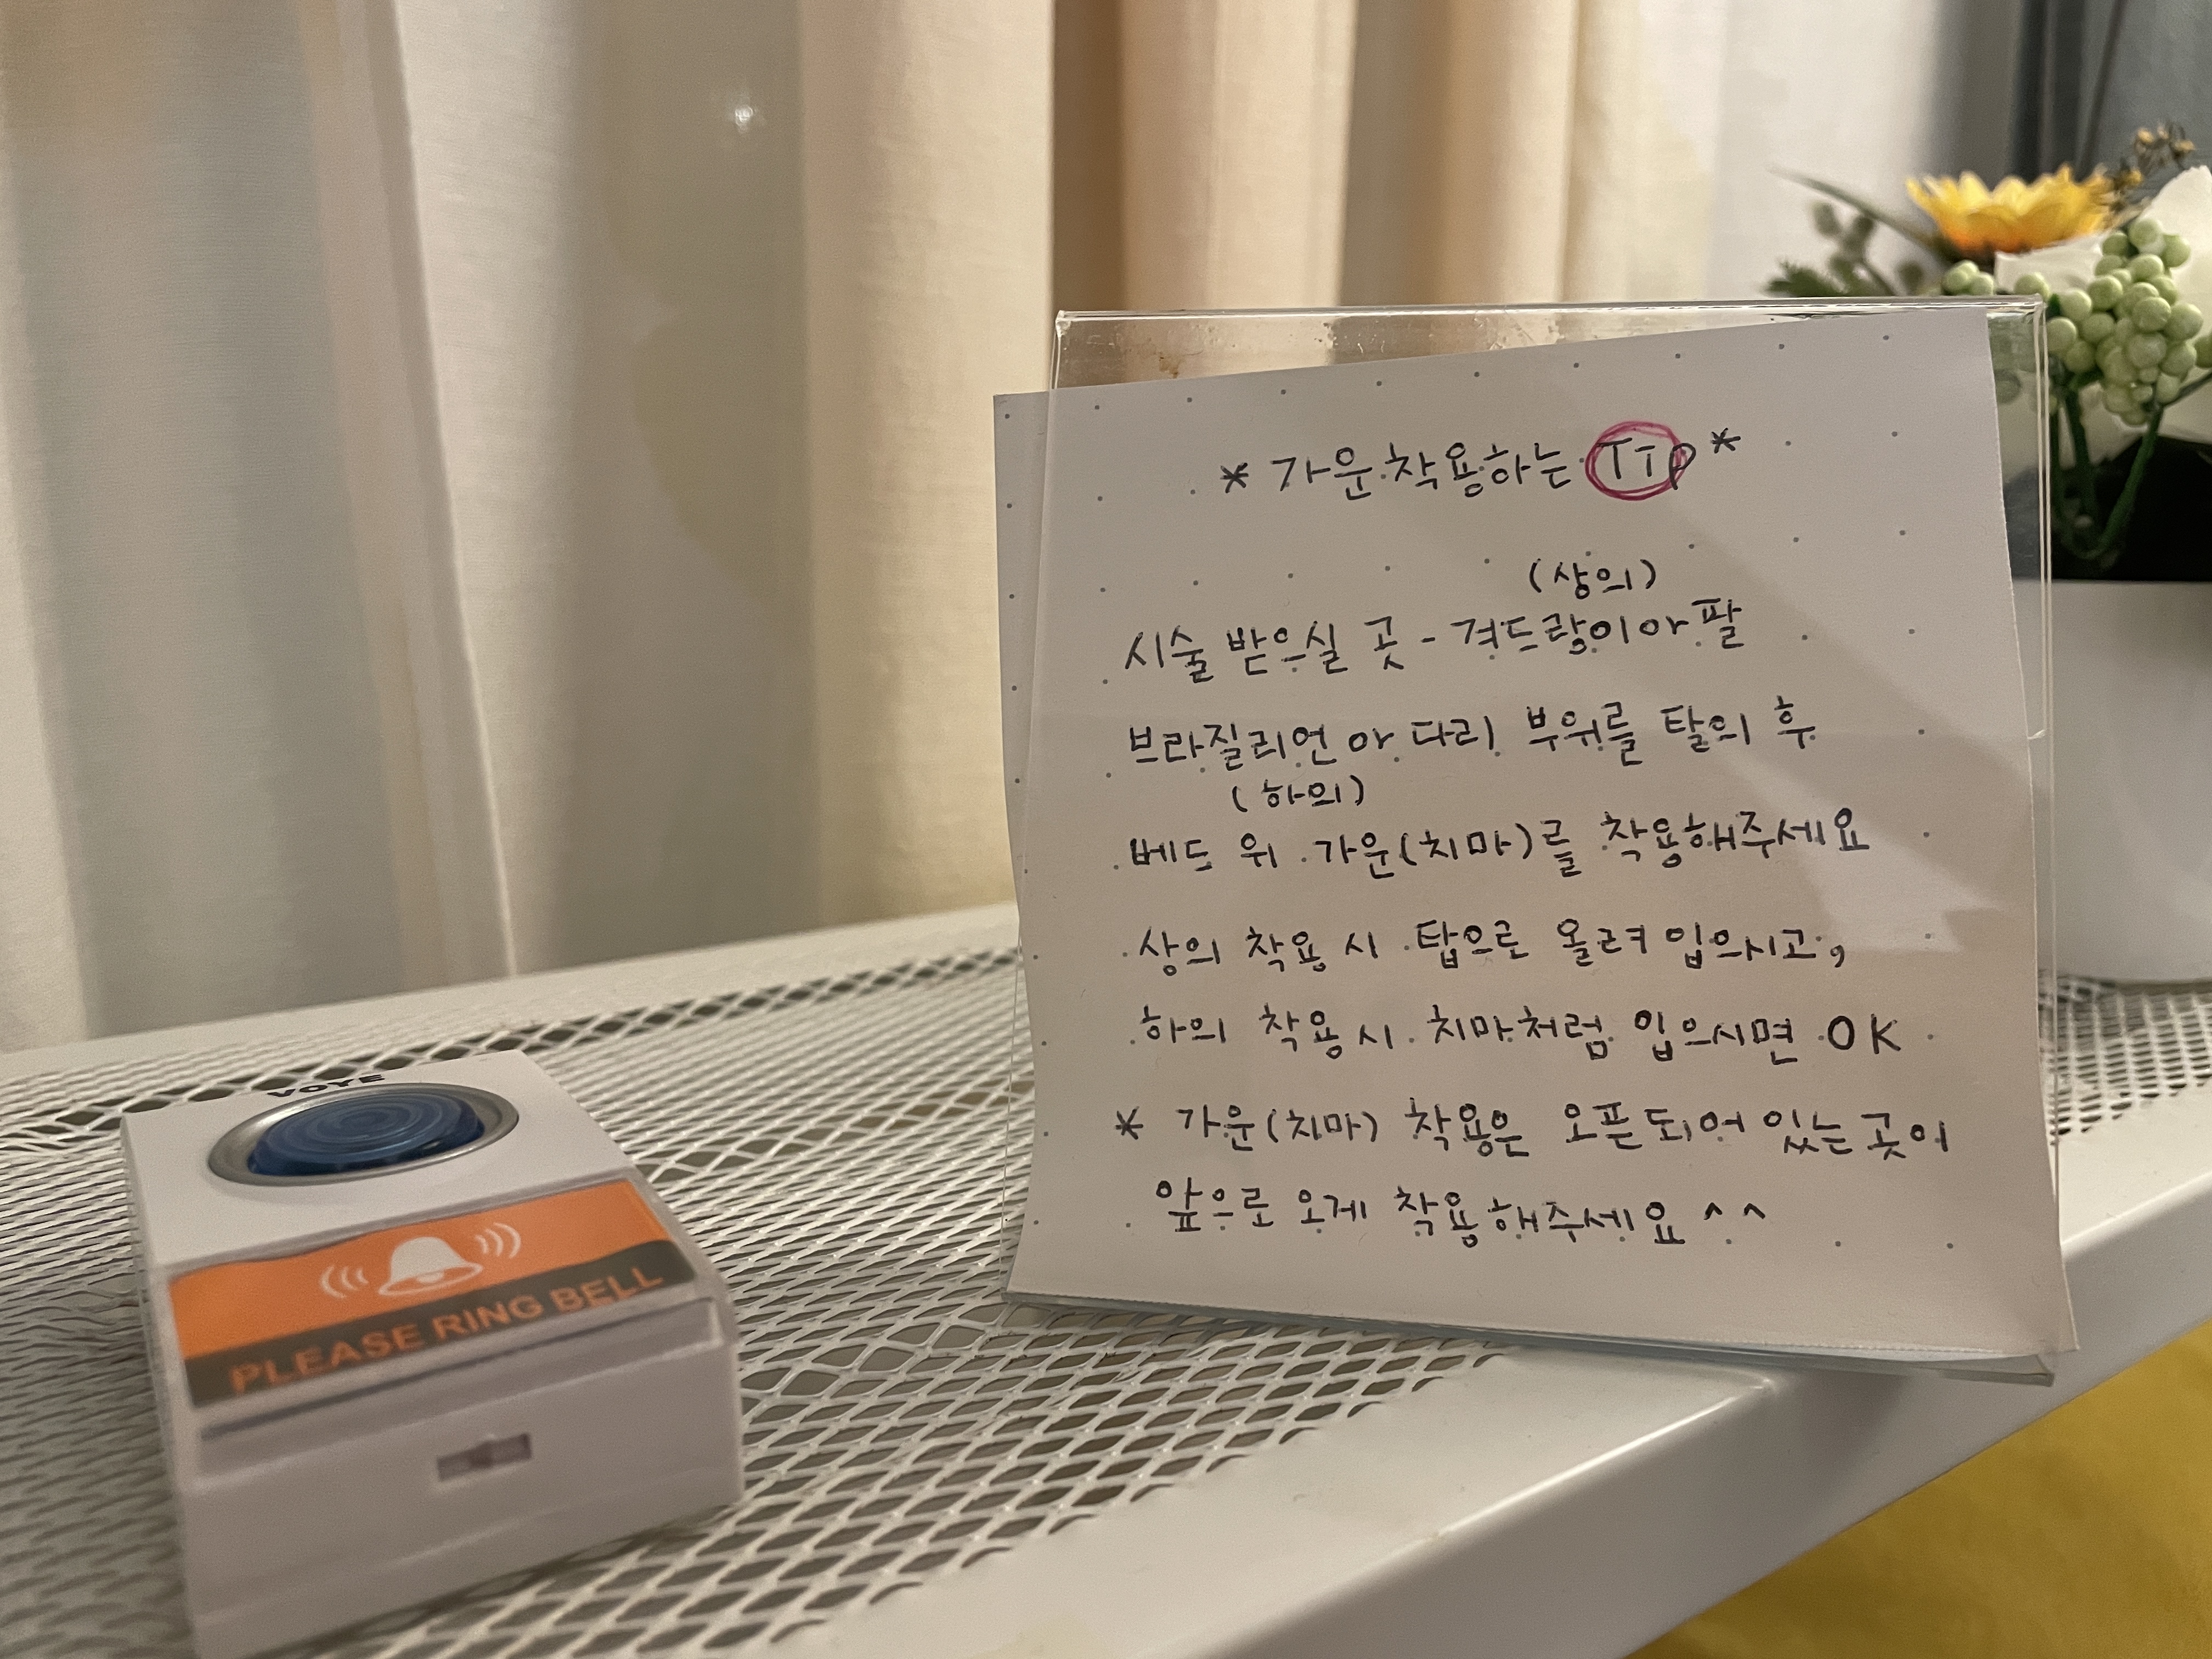 * 가운 착용하는 TIP *
(상의)
시술 받으실 곳 - 겨드랑이 or 팔
브라질리언 or 다리 부위를 탈의 후
(하의)
베드 위 가운(치마)를 착용해주세요
상의 착용 시 탑으로 올려 입으시고,
하의 착용 시 치마처럼 입으시면 OK
* 가운(치마) 착용은 오픈되어 있는 곳이
앞으로 오게 착용해주세요 ^^
VOYE
PLEASE RING BELL